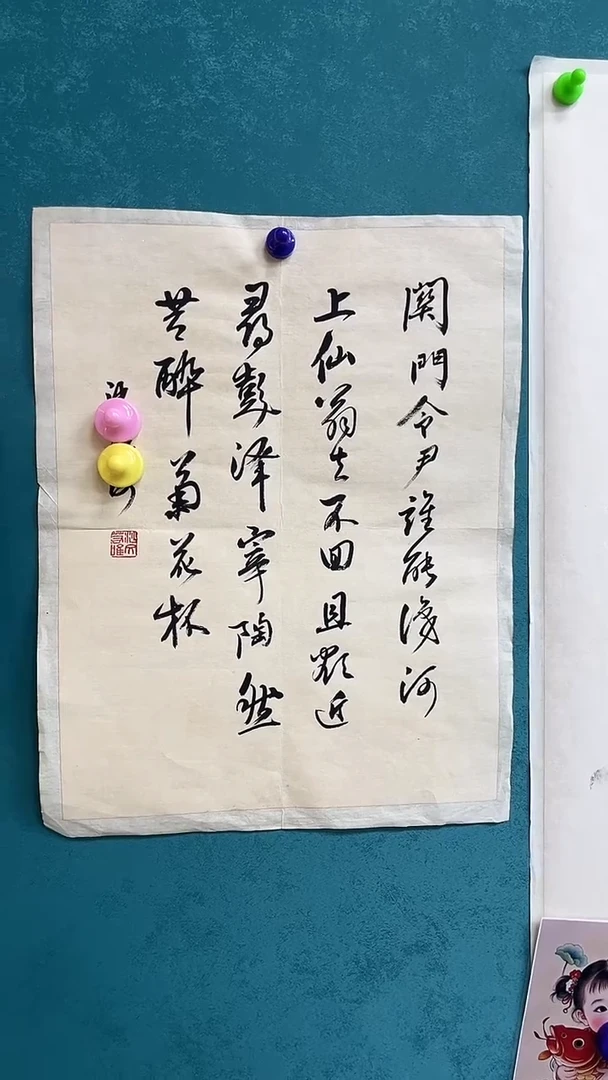 關門令尹誰能識河
上仙翁去不回且欲近
尋彭澤宰陶然
共醉菊花杯